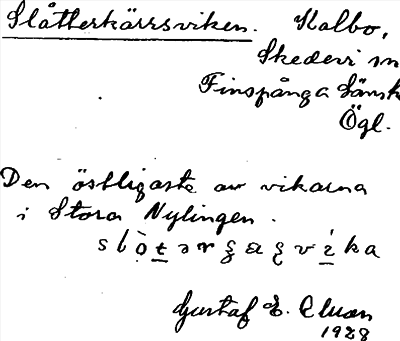 Slåtterkärrsviken. Kalbo,
Skedevi sn
Finspånga länsh
Ögl.
Den östligaste av vikarna
i Stora Nylingen.
Gustaf E.
1928